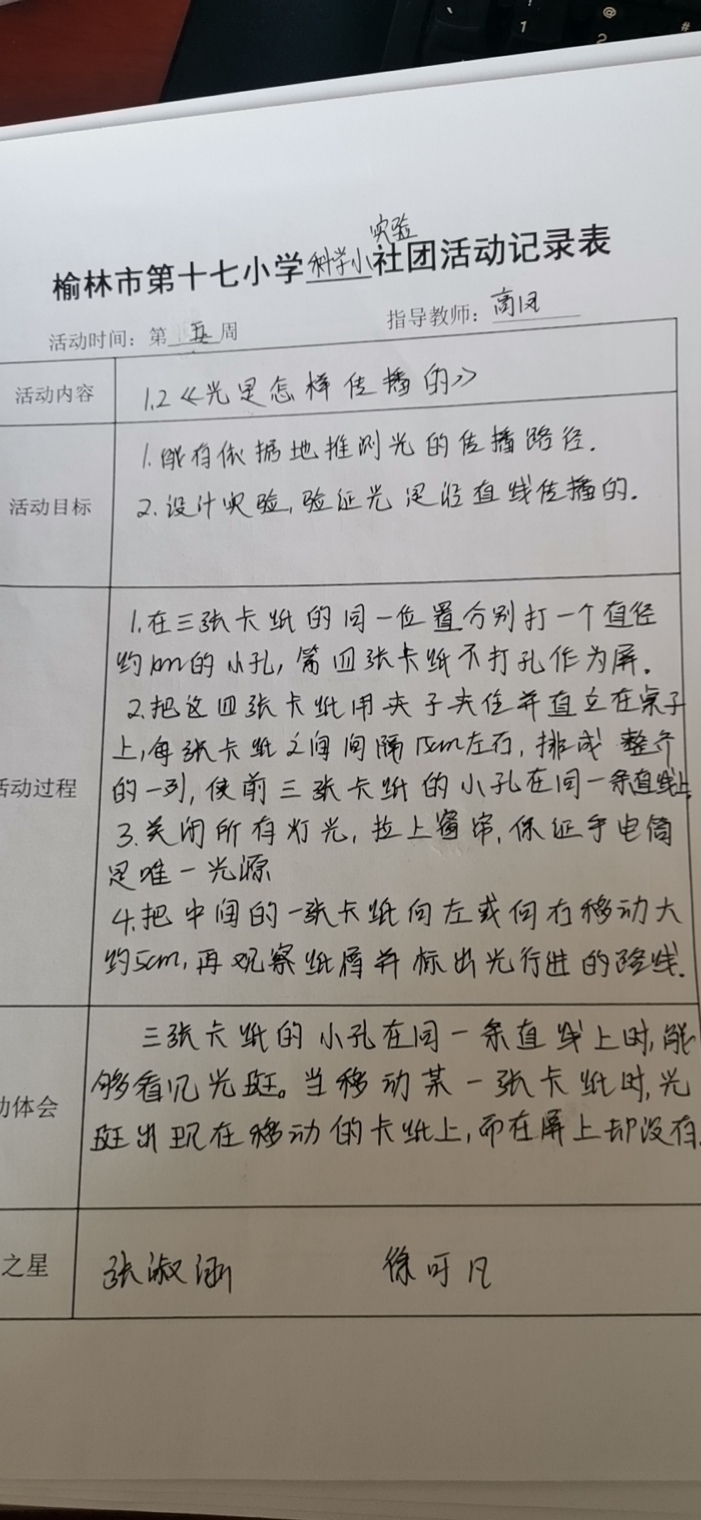 榆林市第十七小学科学小实验社团活动记录表
活动时间：第五周 指导教师：高凤
活动内容 1.2《光是怎样传播的》
1.能有依据地推测光的传播路径.
活动目标 2.设计实验,验证光是沿直线传播的.
1.在三张卡纸的同一位置分别打一个直径
约1cm的小孔,第四张卡纸不打孔作为屏.
2.把这四张卡纸用夹子夹住并直立在桌子
上,每张卡纸之间间隔15cm左右,排成整齐
活动过程 的一列,使前三张卡纸的小孔在同一条直线上
3.关闭所有灯光,拉上窗帘,保证手电筒
是唯一光源
4.把中间的一张卡纸向左或向右移动大
约5cm,再观察纸屏并标出光行进的路线.
三张卡纸的小孔在同一条直线上时,能
动体会 够看见光斑。当移动某一张卡纸时,光
斑出现在移动的卡纸上,而在屏上却没有.
之星 张淑涵 徐可凡